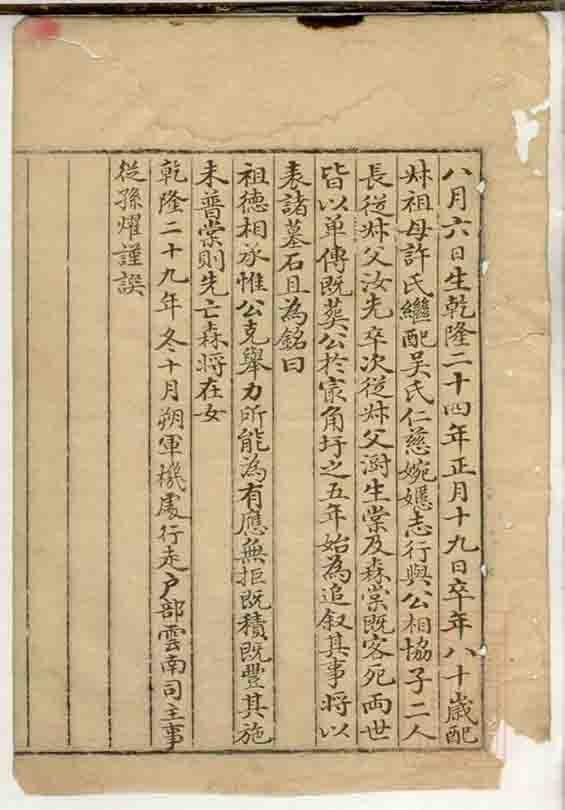 八月六日生乾隆二十四年正月十九日卒年八十歲配
叔祖母許氏繼配吳氏仁慈婉嫕志行與公相協子二人
長從叔父汝先卒次從叔父澍生棠及森棠既客死兩世
皆以單傳既葬公於家角圩之五年始為追叙其事將以
表諸墓石且為銘曰
祖德相承惟公克舉力所能為有應無拒既積既豐其施
未普棠則先亡森將在女
乾隆二十九年冬十月朔軍機處行走戶部雲南司主事
從孫燿謹譔